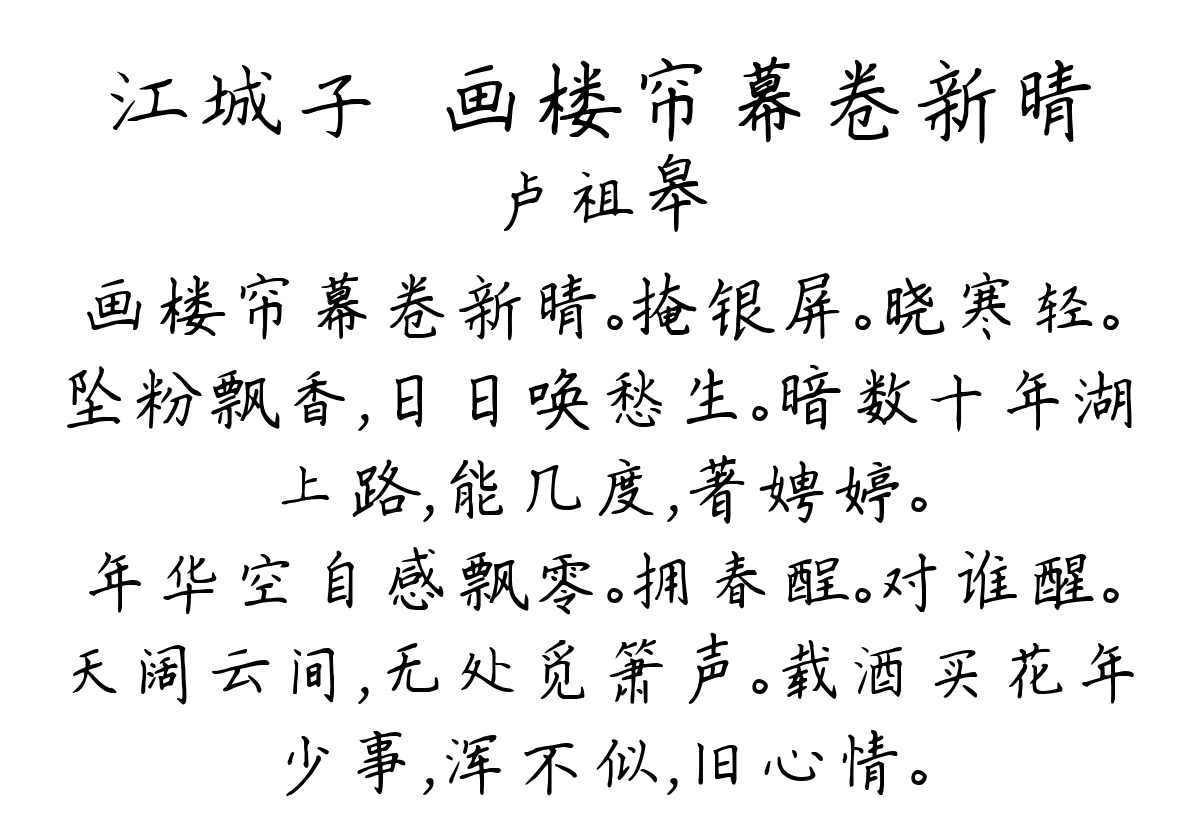 江城子 画楼帘幕卷新晴
卢祖皋
画楼帘幕卷新晴。掩银屏。晓寒轻。
坠粉飘香,日日唤愁生。暗数十年湖
上路,能几度,著娉婷。
年华空自感飘零。拥春酲。对谁醒。
天阔云间,无处觅箫声。载酒买花年
少事,浑不似,旧心情。